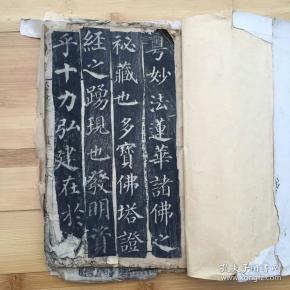 粤妙法蓮華諸佛之
祕藏也多寶佛塔證
經之踴現也發明資
乎十力弘建在於
孔夫子旧书网